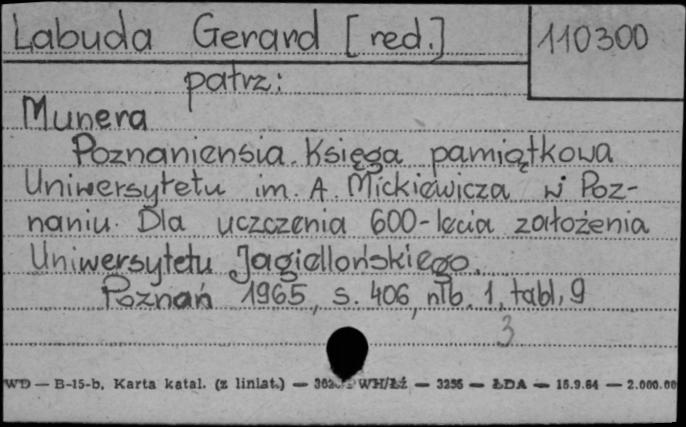 Labuda Gerard [red.] 110300
patrz:
Munera
Poznaniensia. Księga pamiątkowa
Uniwersytetu im. A. Mickiewicza w Poz-
naniu. Dla uczczenia 600-lecia założenia
Uniwersytetu Jagiellońskiego.
Poznań 1965, s. 406, nlb. 1, tabl. 9
3
WD — B-15-b. Karta katal. (z liniat.) — WH/Łź — 3256 — ŁDA — 15.9.64 — 2.000.00